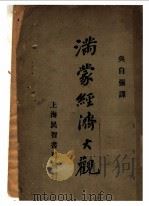 吳自强譯
滿蒙經濟大觀
上海民智書